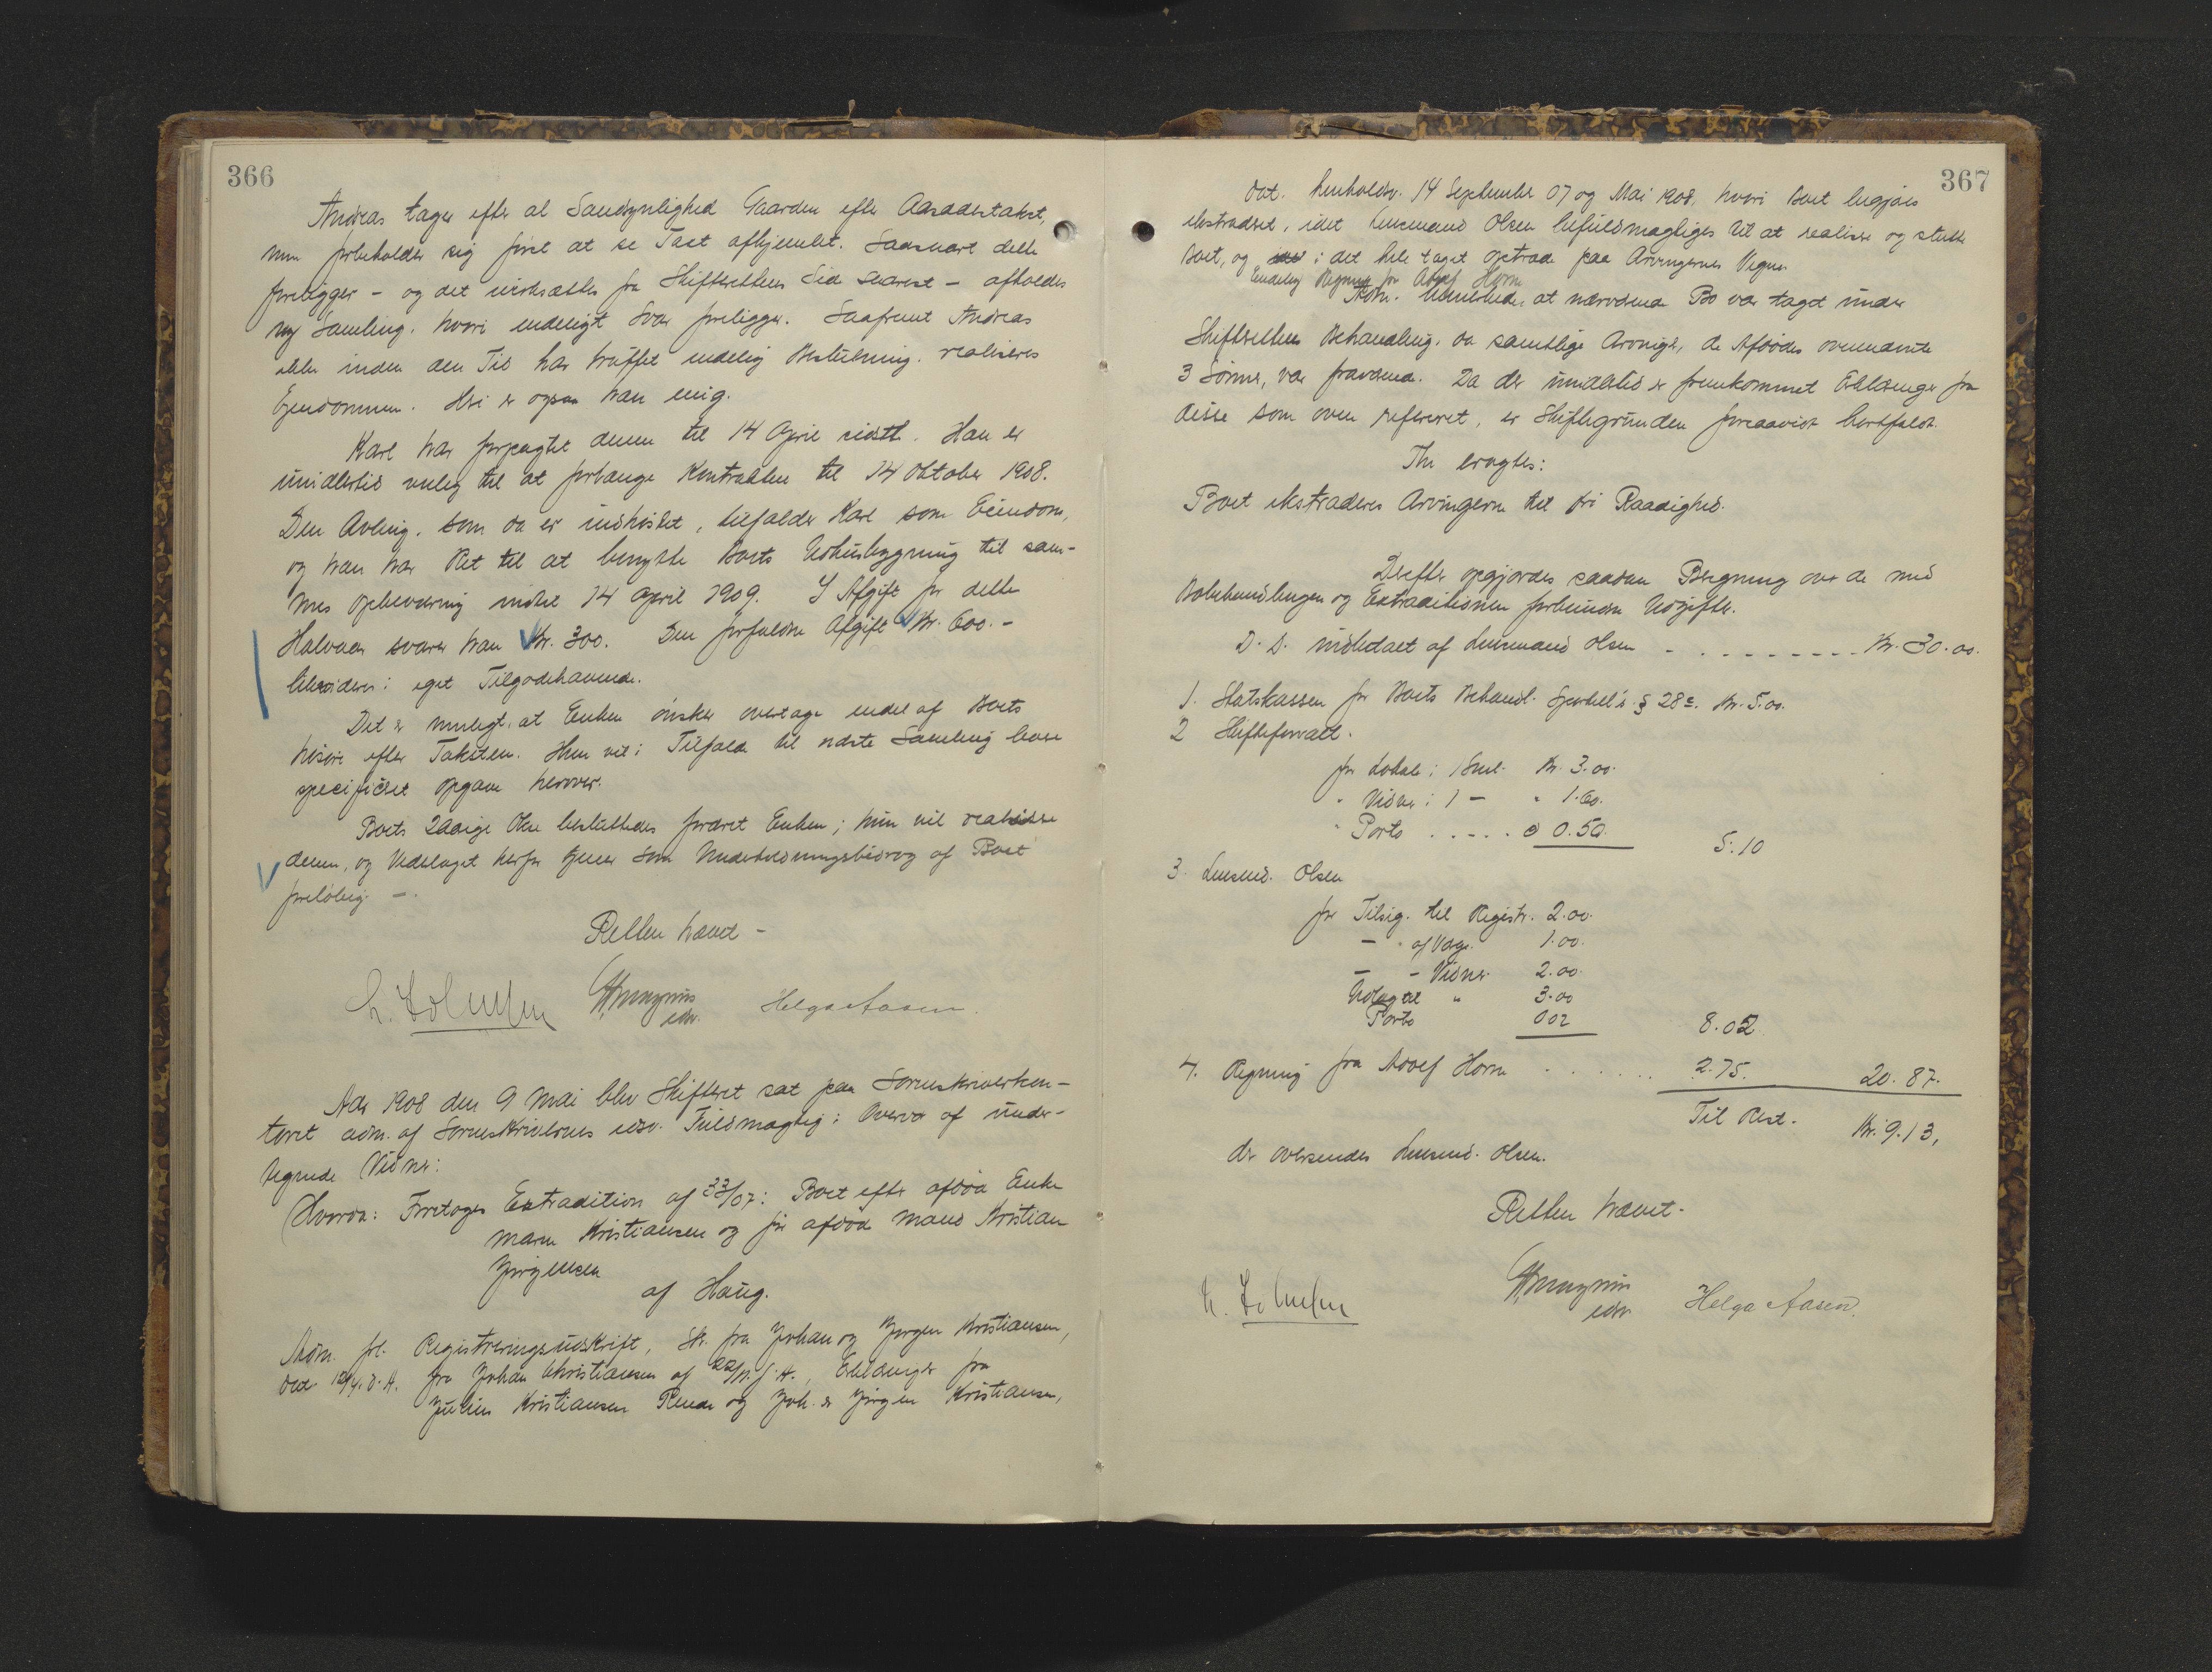 366
Andreas tager efter al Sandsynlighed Gaarden efter Aasædestakst,
men forbeholder sig først at se Taxt afhjemlet. Saasnart dette
foreligger - og det iverksættes fra Skifterettens Side snarest - afholdes
ny Samling, hvori endeligt Svar foreligger. Saafremt Andreas
ikke inden den Tid har truffet endelig Bestemning, realiseres
Ejendommen. Heri er ogsaa han enig.
Karl har forpagtet denne til 14 April sidstl. Han er
imidlertid villig til at forlænge Kontrakten til 14 Oktober 1908.
Den Avling, som da er indhøstet, tilfalder Karl som Eiendom,
og han har Ret til at benytte Boets Udhusbygning til sam-
mes Opbevaring indtil 14 April 1909. I Afgift for dette
Halvaar svarer han Kr. 300. Den forfaldne Afgift Kr. 600.-
likvideres i eget Tilgodehavende.
Det er muligt, at Enken ønsker overtage endel af Boets
Løsøre efter Taksten. Hun vil i Tilfælde til næste Samling have
specificeret Opgave herover.
Boets 2aarige Okse besluttedes foræret Enken; hun vil realisere
denne, og Vederlaget herfor tjener som Underholdningsbidrag af Boet
foreløbig -.
Retten hævet -
L. Holmsen
edsv.
Helga Aasen.
Aar 1908 den 9 Mai blev Skifteret sat paa Sorenskriverkon-
toret adm. af Sorenskriverens edsv. Fuldmægtig i Overvær af under-
tegnede Vidner:
Hvorda: Foretoges Extradition af 33/07: Boet efter afdøde Enke
Maren Kristiansen og før afdøde Mand Kristian
Jørgensen
af Haug.
Adm. frl. Registreringsudskrift, Skr. fra Johan og Jørgen Kristiansen,
dat 12/4. d. A. fra Johan Christiansen af 22/11. f. A., Erklæringer fra
Julius Kristiansen Rena og Joh. & Jørgen Kristiansen,
367
dat. henholdsv. 14 September 07 og Mai 1908, hvori Boet begjæres
ekstraderet, idet Lensmand Olsen befuldmægtiges til at realisere og slutte
Boet, og i det hele taget optræde paa Arvingernes Vegne
Endelig Regning fra Adolf Horn
Adm. bemerkede, at nærværende Bo var taget under
Skifterettens Behandling, da samtlige Arvinger, de Afdødes ovennævnte
3 Sønner, var fraværende. Da der imidlertid er fremkommet Erklæringer fra
disse som oven refereret, er Skiftegrunden forsaavidt bortfaldt.
Thi eragtes:
Boet ekstraderes Arvingerne til fri Raadighed.
Derefter opgjordes saadan Beregning over de med
Bobehandlingen og Extraditionen forbundne Udgifter.
D. D. indbetalt af Lensmand Olsen - - - - - - - - - Kr. 30.00.
1. Statskassen for Boets Behandl. Sportell. § 28 c. Kr. 5.00.
2 Skifteforvalt.
for Lokale i 1 Saml. Kr. 3.00.
" Vidner i 1 - " 1.60.
" Porto ..... " 0.50.
5.10
3. Lensmd. Olsen
for Tilsig. til Registr. 2.00.
- " af Værge. 1.00.
- - Vidner 2.00.
Udlæg til " 3.00
Porto 0 02
8.02
4. Regning fra Adolf Horn ...... 2.75. 20.87.
Til Rest. Kr. 9.13,
der oversendes Lensmd. Olsen.
Retten hævet.
L. Holmsen
edsv
Helga Aasen.